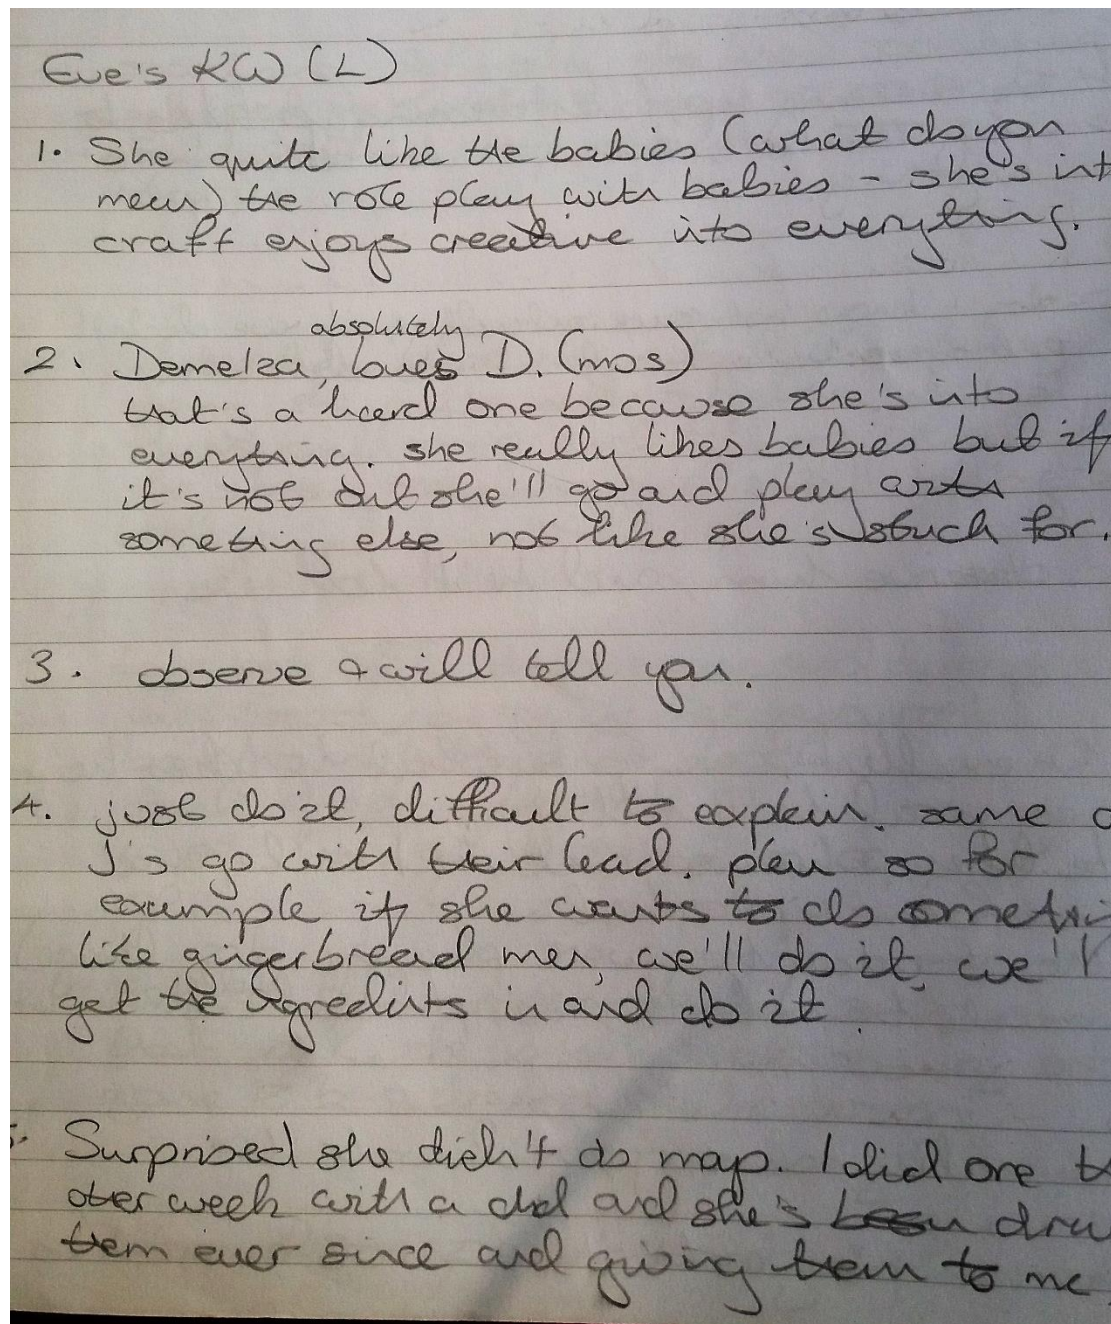 Eve's KW (L)
1. She quite like the babies (what do you
mean) the role play with babies - she's int
craft enjoys creative into everything.
absolutely
2. Demelza, loves D. (mos)
that's a hard one because she's into
everything. she really likes babies but if
it's not out she'll go and play
something else, not like she's stuck for.
3. observe & will tell you.
4. just do it, difficult to explain. same
J's go with their lead. plan so for
example if she wants to do somethi
like gingerbread men, we'll do it, we'l
get the ingredints in and do it.
Surprised she didn't do map. I did one t
other week with a and she's been dra
them ever since and giving them to me.